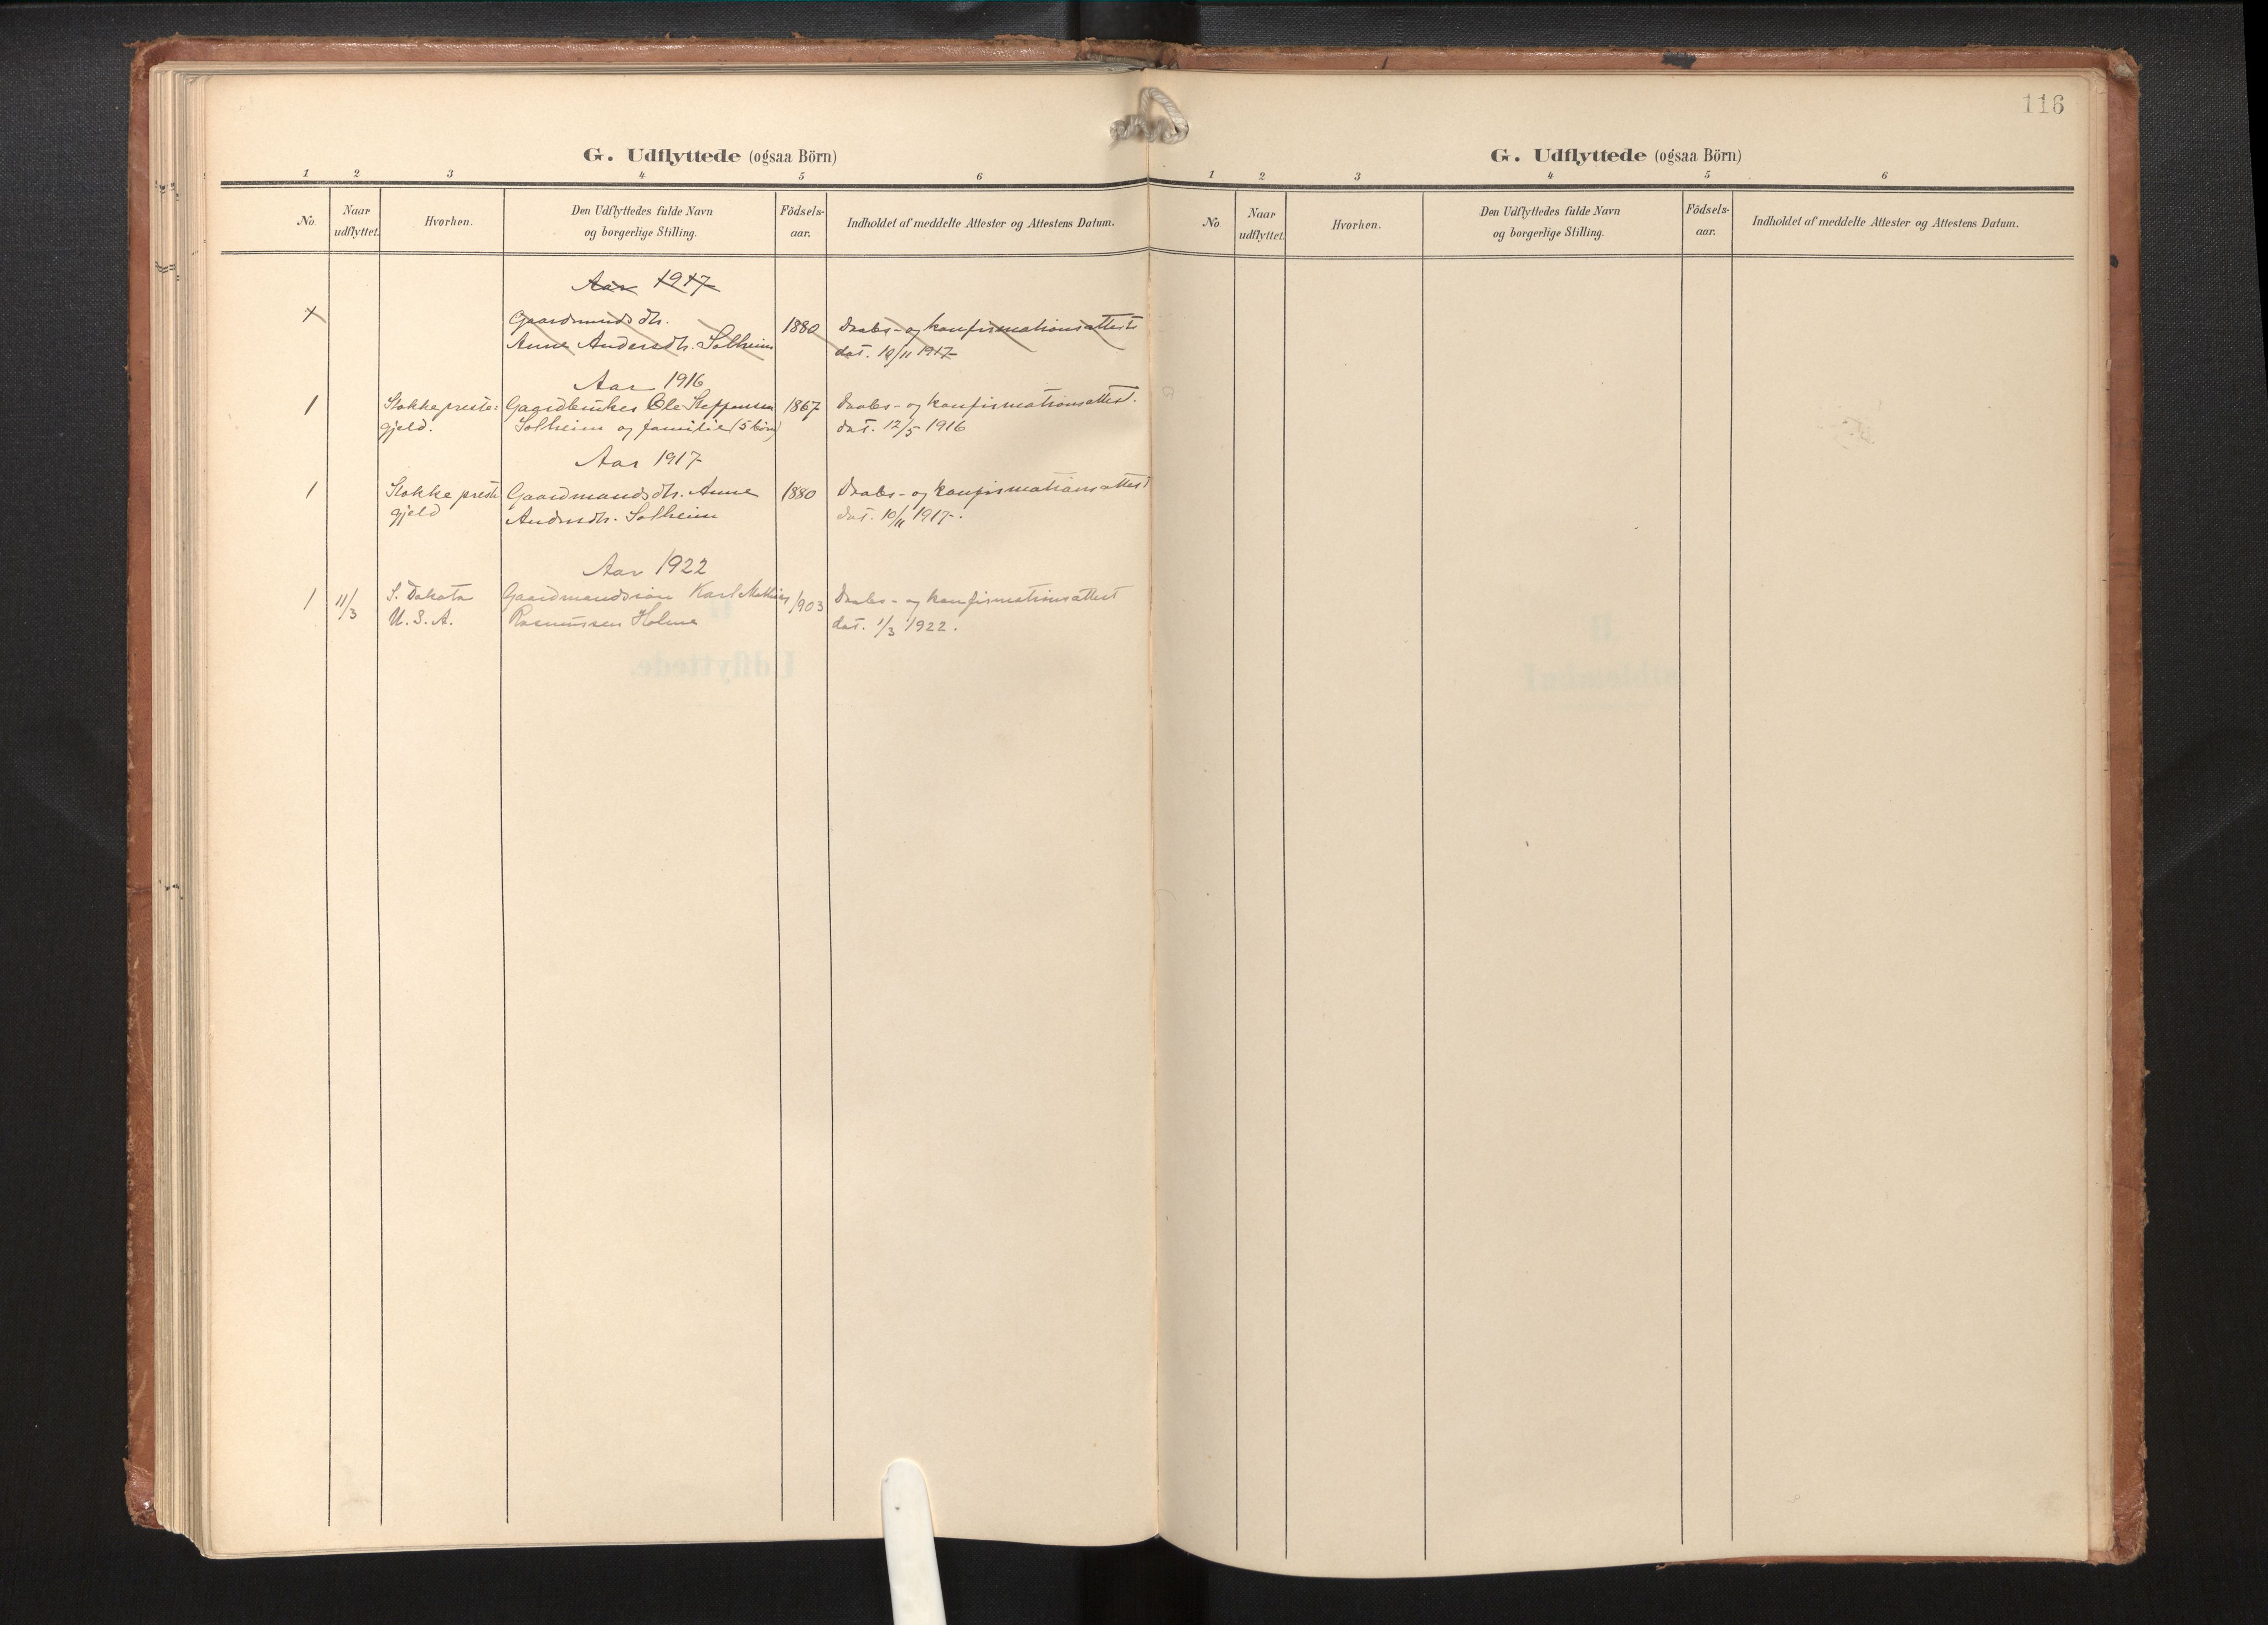 116
G. Udflyttede (ogsaa Börn)
1 2 3 4 5 6
No. Naar udflyttet. Hvorhen. Den Udflyttedes fulde Navn og borgerlige Stilling. Födsels-aar. Indholdet af meddelte Attester og Attestens Datum.
Aar 1917
1 Gaardmandsdtr. 1880 Daabs- og konfirmationsattest
Anne Andersdtr. Solheim dat. 10/11 1917
Aar 1916
1 Stokke preste- Gaardbruker Ole Steffensen 1867 Daabs- og konfirmationsattest.
gjeld. Solheim og familie (5 børn) dat. 12/5 1916
Aar 1917
1 Stokke preste Gaardmandsdtr. Anne 1880 Daabs- og konfirmationsattest
gjeld Andersdtr. Solheim dat. 10/11 1917.
Aar 1922
1 11/3 S. Dakota Gaardmandssøn Karl Mathias 1903 Daabs- og konfirmationsattest
U. S. A. Rasmussen Holme dat. 1/3 1922.
G. Udflyttede (ogsaa Börn)
1 2 3 4 5 6
No Naar udflyttet. Hvorhen. Den Udflyttedes fulde Navn og borgerlige Stilling. Födsels-aar. Indholdet af meddelte Attester og Attestens Datum.